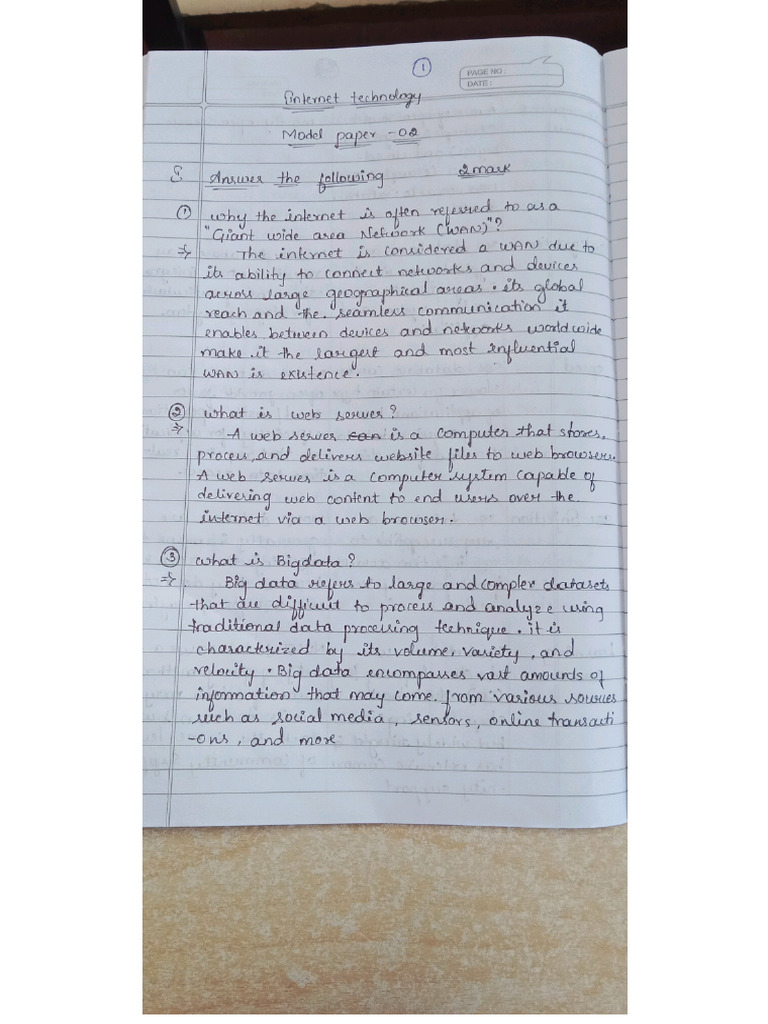 1
PAGE NO:
DATE:
Internet technology
Model paper - 02
I. Answer the following 2 mark
1 why the internet is often referred to as a
"Giant wide area Network (WAN)"?
⇒ The internet is considered a WAN due to
its ability to connect networks and devices
across large geographical areas. its global
reach and the seamless communication it
enables between devices and networks worldwide
make it the largest and most influential
WAN is existence.
2 what is web server?
⇒ A web server can is a computer that stores,
process, and delivers website files to web browsers.
A web server is a computer system capable of
delivering web content to end users over the
internet via a web browser.
3 what is Bigdata?
⇒ Big data refers to large and complex datasets
that are difficult to process and analyze using
traditional data processing technique. it is
characterized by its volume, variety, and
velocity. Big data encompasses vast amounts of
information that may come from various sources
such as social media, sensors, online transacti
-ons, and more